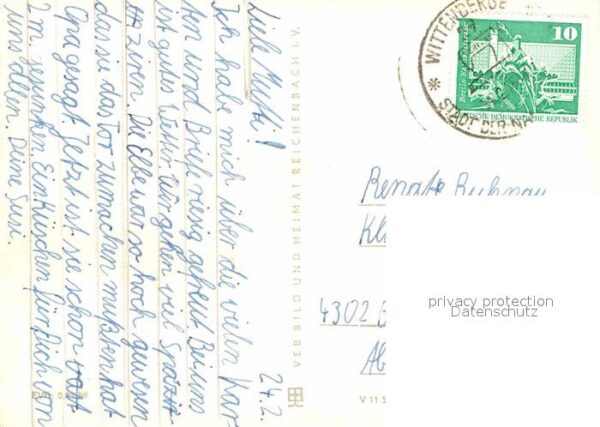 24.2.
Liebe Mutti!
Ich habe mich über die vielen Kar-
ten und Brief riesig gefreut. Bei uns
ist gutes Wetter. Wir gehen viel Spazi-
zieren. Die Elbe war so hoch gewesen
das sie das Tor zumachen mußten hat
Opa gesagt. Jetzt ist sie schon
2 m. gesunken. Ein Küschen für Dich von
uns allen. Deine Susi.
EVP
VEB BILD UND HEIMAT REICHENBACH I. V.
V 11 5
WITTENBERGE
STADT DER NA
10
DEMOKRATISCHE REPUBLIK
Renate
Kl
4302
privacy protection
Datenschutz